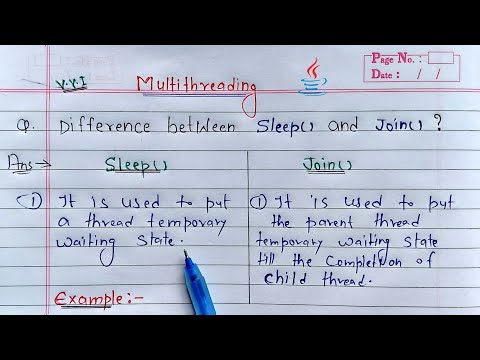 Page No. :
Date : / /
V.V.I
Multithreading
Q. Difference between Sleep() and Join() ?
Ans →
Sleep()
① It is used to put
a thread temporary
waiting state.
Join()
① It is used to put
the parent thread
temporary waiting state
till the completion of
child thread.
Example:-